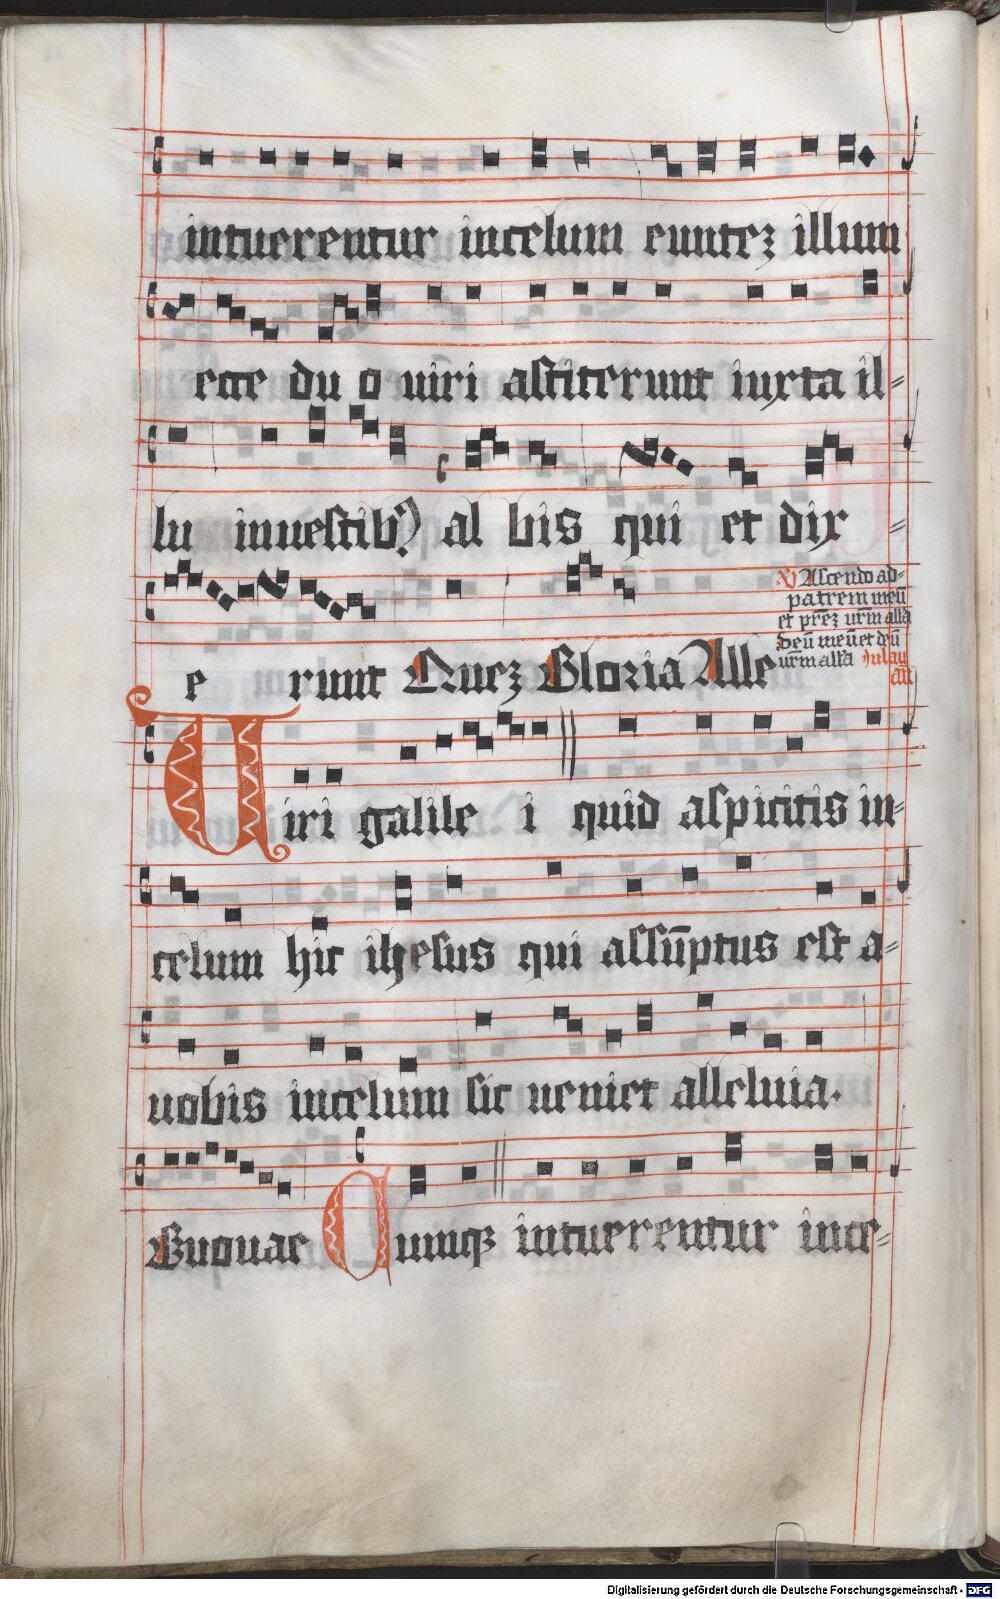 intuerentur incelum euntez illum
ecce du o uiri astiterunt iuxta il=
lu inuestibꝰ al bis qui et dix =
e runt Quez Gloria Alle
℟ Ascendo ad=
patrem meū
et prēz urm̄ alla
deū meū et deū
urm̄ alla In lau
añ
Uiri galile i quid aspicitis in=
celum hic ihesus qui assūptus est a=
uobis incelum sic ueniet alleluia.
Euouae Cumqꝫ intuerentur ince=
Digitalisierung gefördert durch die Deutsche Forschungsgemeinschaft - DFG